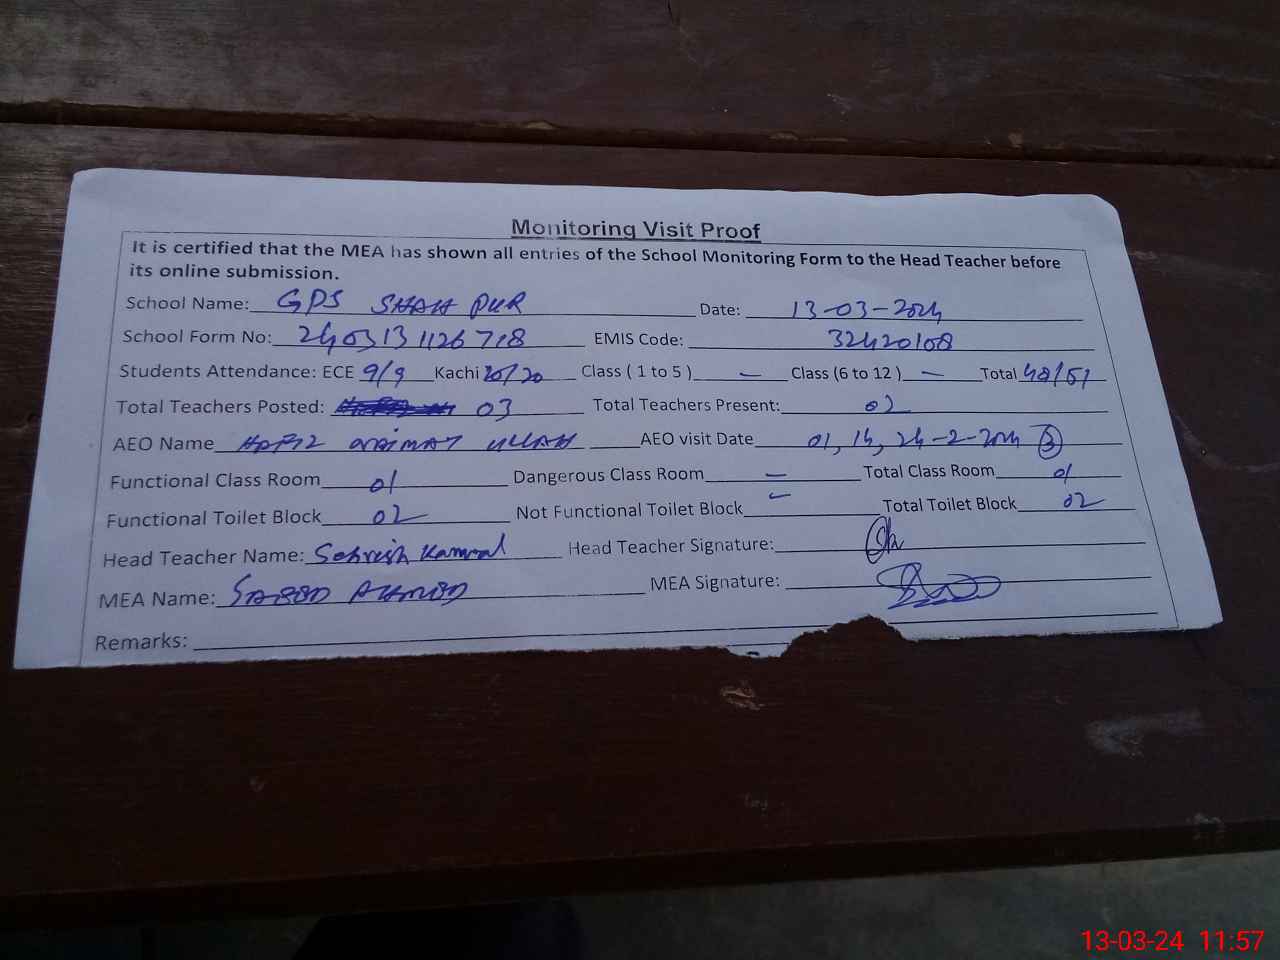 Monitoring Visit Proof
It is certified that the MEA has shown all entries of the School Monitoring Form to the Head Teacher before
its online submission.
School Name: GPS SHAH PUR Date: 13-03-2024
School Form No: 240313 1126 718 EMIS Code: 32420108
Students Attendance: ECE 9/9 Kachi 20 Class ( 1 to 5 ) - Class (6 to 12 ) - Total 48/51
Total Teachers Posted: 03 Total Teachers Present: 02
AEO Name HAFIZ ULLAH AEO visit Date 01, 14, 24-2-2024 3
Functional Class Room 01 Dangerous Class Room - Total Class Room 01
Functional Toilet Block 02 Not Functional Toilet Block - Total Toilet Block 02
Head Teacher Name: Sehrish Kanwal Head Teacher Signature:
MEA Name: SAEED AHMED MEA Signature:
Remarks:
13-03-24 11:57